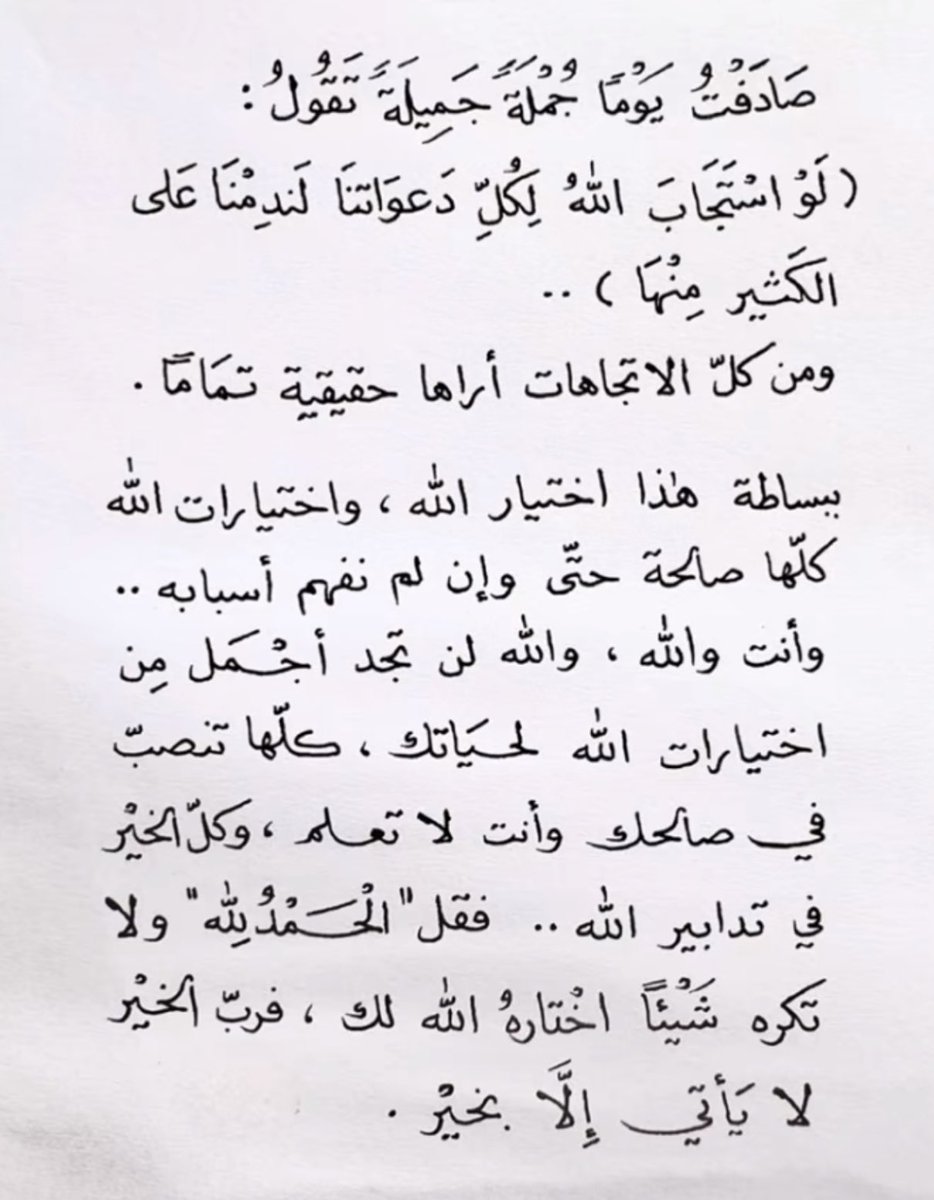 صَادَفْتُ يَوْمًا جُمْلَةً جَمِيلَةً تَقُولُ :
( لَوْ اسْتَجَابَ اللهُ لِكُلِّ دَعوَاتنَا لَندِمْنَا عَلى
الكَثير مِنْهَا ) ..
ومن كلّ الاتجاهات أراها حقيقية تمَامًا .
ببساطة هٰذا اختيار الله ، واختيارات الله
كلّها صالحة حتّى وإن لم نفهم أسبابه ..
وأنت والله ، والله لن تجد أجْمَل مِن
اختيارات الله لحيَاتك ، كلّها تنصبّ
في صالحك وأنت لا تعلم ، وكلّ الخيْر
في تدابير الله .. فقل "الْحَمْدُ لِلّه" ولا
تكره شَيْئًا اخْتارهُ الله لك ، فربّ الخيْر
لا يَأتي إِلَّا بخيْر .